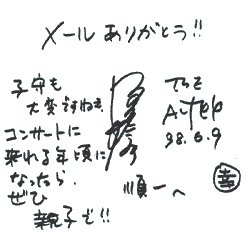 メールありがとう!!
子守も
大変ですねぇ
コンサートに
来れる年頃に
なったら、
ぜひ
親子で!!
THE
ALFEE
98.6.9
順一へ
幸